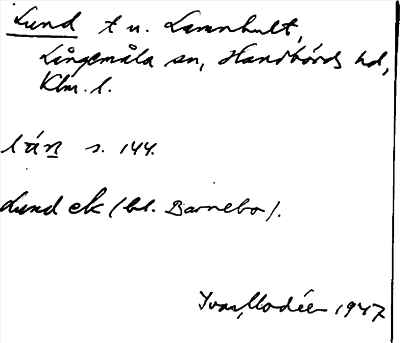 Lund t u. Lammhult,
Långemåla sn, Handbörds hd,
Klm. l.
lán s. 144.
Lund ek (bl. Barnebo).
Ivar Modéer 1947